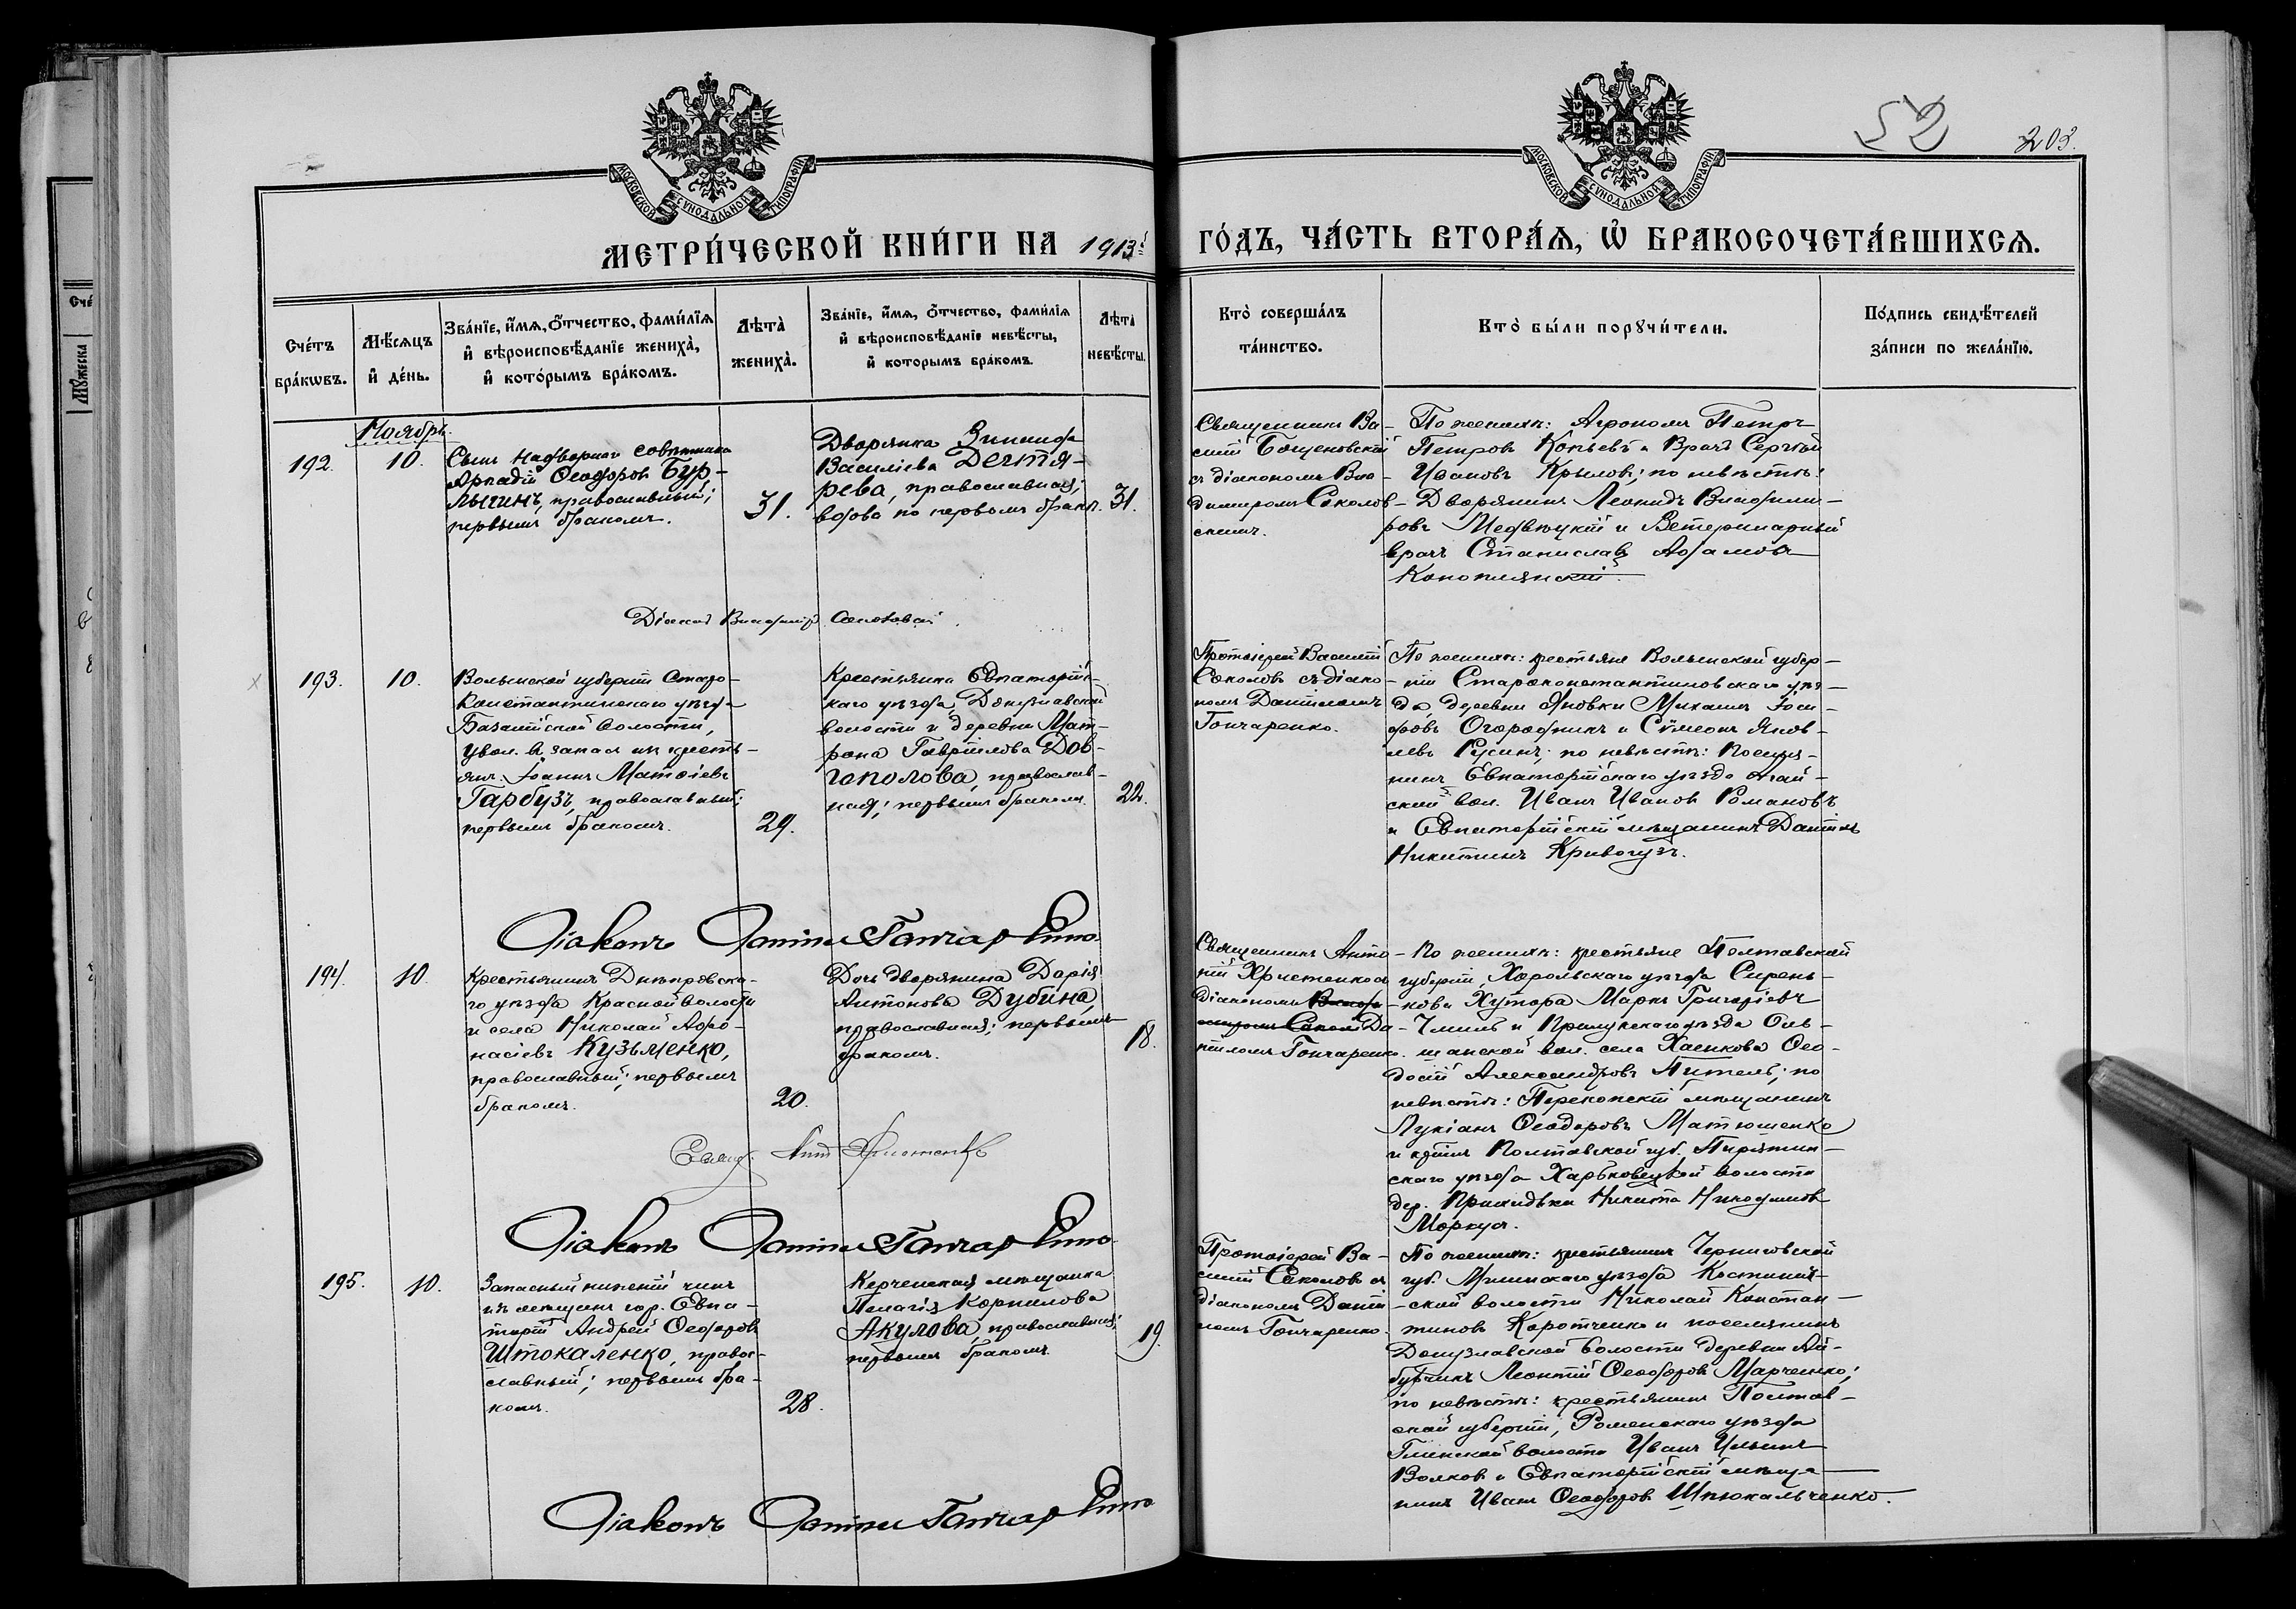 МОСКОВСКОЙ СУНОДАЛЬНОЙ ТИПОГРАФІИ
МОСКОВСКОЙ СУНОДАЛЬНОЙ ТИПОГРАФІИ
52
203.
МЕТРИ́ЧЕСКОЙ КНИ́ГИ НА 1913й
ГО́ДЪ, ЧА́СТЬ ВТОРА́Ѧ, Ѡ҆ БРАКОСОЧЕТА́ВШИХСѦ.
Сче́тъ
бра́кѡвъ.
Мѣ́сѧцъ
и҆ де́нь.
Зва́нїе, и҆́мѧ, ѻ҆́тчество, фами́лїѧ
и҆ вѣроисповѣ́данїе жениха̀,
и҆ кото́рымъ бра́комъ.
Лѣта̀
жениха̀.
Зва́нїе, и҆́мѧ, ѻ҆́тчество, фами́лїѧ
и҆ вѣроисповѣ́данїе невѣ́сты,
и҆ кото́рымъ бра́комъ.
Лѣта̀
невѣ́сты.
Кто̀ соверша́лъ
та́инство.
Кто̀ бы́ли порꙋчи́тели.
По́дпись свидѣ́телей
за́писи по жела́нїю.
Ноябрь.
192.
10.
Сынъ Надворнаго совѣтника
Аркадій Ѳеодоровъ Бур-
лыгинъ, православный;
первымъ бракомъ.
31.
Дворянка Зинаида
Василіева Дегтя-
рева, православная;
вдова по первомъ бракѣ.
31.
Священникъ Ва-
силій
съ діакономъ Вла-
димиромъ Соколов-
скимъ.
По женихѣ: Агрономъ Петръ
Петровъ Копьевъ и Врачъ Сергѣй
Ивановъ Крыловъ; по невѣстѣ:
Дворянинъ Леонидъ Владими-
ровъ Медвѣцкій и Ветеринарный
врачъ Станиславъ Адамовъ
Коноплянскій.
Діаконъ Владиміръ
193.
10.
Волынской губерніи Старо-
константиновскаго уѣзда
Базалійской волости,
увол. въ запасъ изъ кресть-
янъ Іоаннъ Матѳіевъ
Гарбузъ, православный;
первымъ бракомъ.
29.
Крестьянка Евпаторійс-
каго уѣзда, Донузлавской
волости и деревни Мат-
рона Гавріилова Дов-
гополова, православ-
ная; первымъ бракомъ.
22.
Протоіерей Василій
Соколовъ съ діако-
номъ Даніиломъ
Гончаренко.
По женихѣ: крестьяне Волынской губер-
ніи Староконстантиновскаго уѣз-
да, деревни Яновки Михаилъ Іоси-
фовъ Огородникъ и Сѵмеонъ Яков-
левъ Русинъ; по невѣстѣ: Поселя-
нинъ Евпаторійскаго уѣзда Агай-
ской вол. Иванъ Ивановъ Романовъ
и Евпаторійскій мѣщанинъ Даніилъ
Никитинъ Кривогузъ.
Діаконъ Даніилъ Гончаренко
194.
10.
Крестьянинъ Днѣпровска-
го уѣзда Красной волости
и села Николай Аѳа-
насіевъ Кузьменко,
православный; первымъ
бракомъ.
20.
Дочь дворянина Дарія
Антонова Дубина,
православная; первымъ
бракомъ.
18.
Священникъ Анто-
ній Христенко съ
діакономъ Влади-
миромъ Сокол Да-
ніиломъ Гончаренко.
По женихѣ: крестьяне Полтавской
губерніи, Хорольскаго уѣзда Сирень-
кова Хутора Маркъ Григоріевъ
и Прилукскаго уѣзда Оль-
шанской вол. села Хаенкова Ѳео-
досій Александровъ Питель; по
невѣстѣ: Перекопскій мѣщанинъ
Лукіанъ Ѳеодоровъ Матюшенко
и кр-нинъ Полтавской губ. Пирятин-
скаго уѣзда Харьковецкой волости
дер. Никита Никодимовъ
Моркуса.
Свящ. Ант. Христенко
Діаконъ Даніилъ Гончаренко
195.
10.
Запасный нижній чинъ
изъ мѣщанъ гор. Евпа-
торіи Андрей Ѳеодоровъ
Штокаленко, правос-
славный; первымъ бра-
комъ.
28.
Керченская мѣщанка
Пелагія Корнилова
Акулова, православная;
первымъ бракомъ.
19.
Протоіерей Ва-
силій Соколовъ съ
діакономъ Даніи-
ломъ Гончаренко.
По женихѣ: крестьянинъ Черниговской
губ. Мглинскаго уѣзда
ской волости Николай Констан-
тиновъ Коротченко и поселянинъ
Донузлавской волости деревни Ай-
бурчикъ Леонтій Ѳеодоровъ Марченко;
по невѣстѣ: крестьянинъ Полтав-
ской губерніи, Роменскаго уѣзда
Глинской волости Иванъ Ильинъ
Волковъ и Евпаторійскій мѣща-
нинъ Иванъ Ѳеодоровъ Штокальченко.
Діаконъ Даніилъ Гончаренко